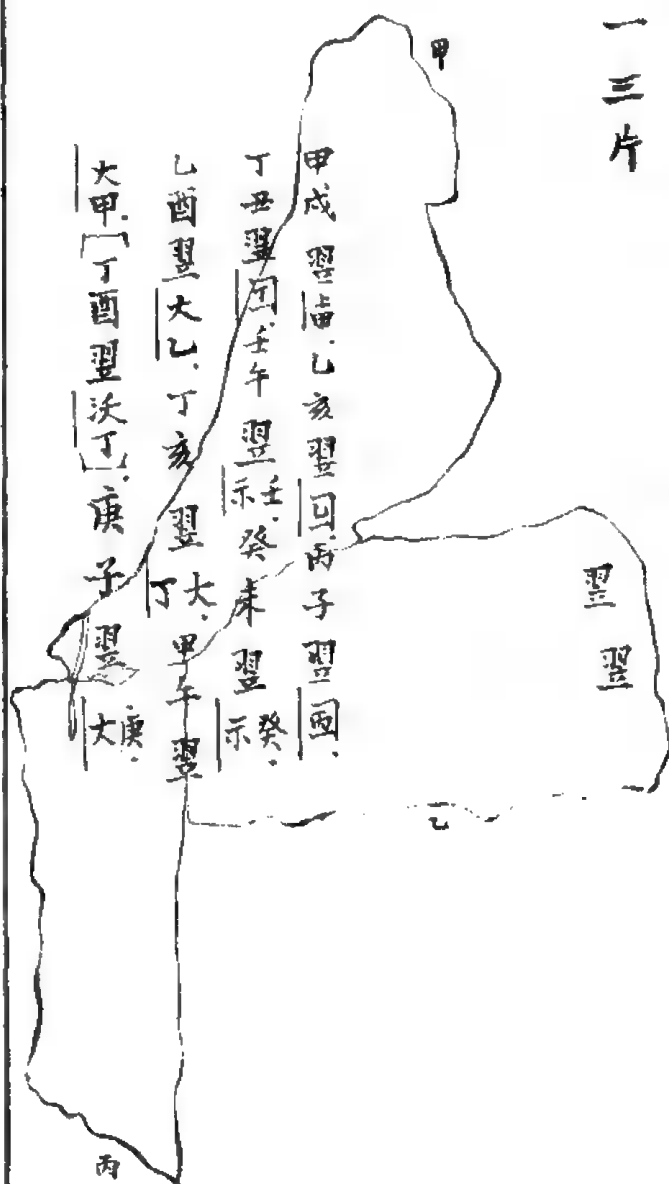 一三片
甲
翌
翌
甲戌翌上甲.乙亥翌匚乙.丙子翌匚丙.
丁丑翌匚丁.壬午翌示壬.癸未翌示癸.
乙酉翌大乙.丁亥翌大丁.甲午翌
大甲.[丁酉翌沃丁].庚子翌大庚.
乙
丙